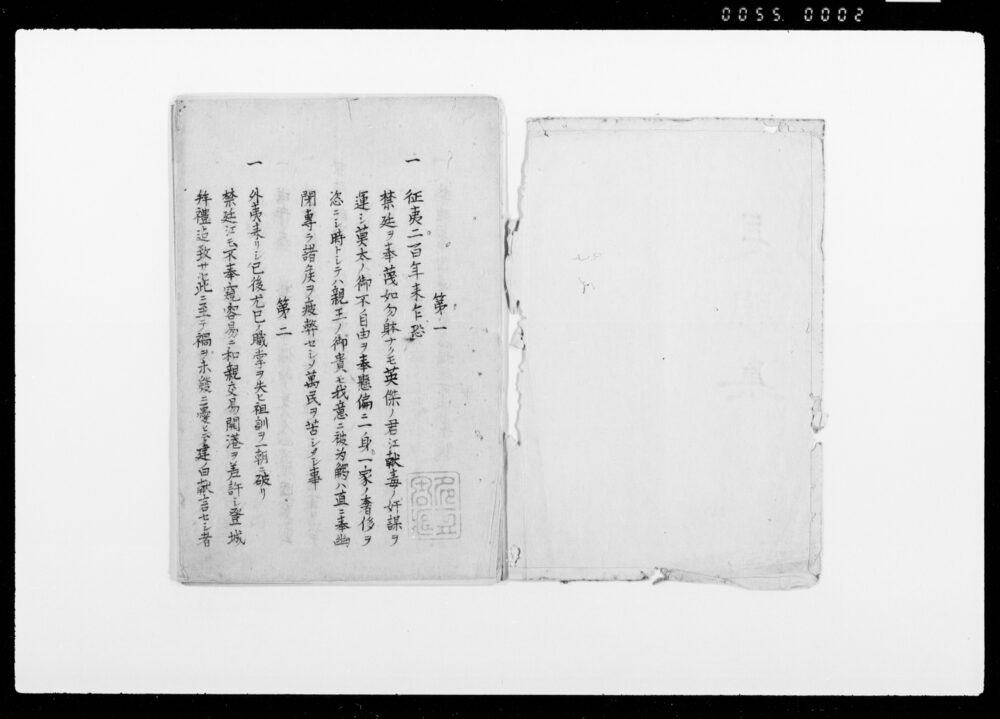 0055 0002
第一
一 征夷二百年来乍恐
禁廷ヲ奉蔑如勿躰ナクモ英傑ノ君江献毒ノ奸謀ヲ
運シ莫太ノ御不自由ヲ奉懸偏ニ一身一家ノ奢侈ヲ
恣ニシ時トシテハ親王ノ御貴モ我意ニ被为觸ハ直ニ奉幽
閉専ラ諸侯ヲ疲弊セシメ萬民ヲ苦シメシ事
第二
一 外夷来リシ已後尤已ノ職掌ヲ失ヒ祖訓ヲ一朝ニ破リ
禁廷江モ不奉窺容易ニ和親交易開港ヲ差許シ登城
拜禮迠致サセ此ニ至テ禍ヲ未發ニ憂ヒテ建白献言セシ者